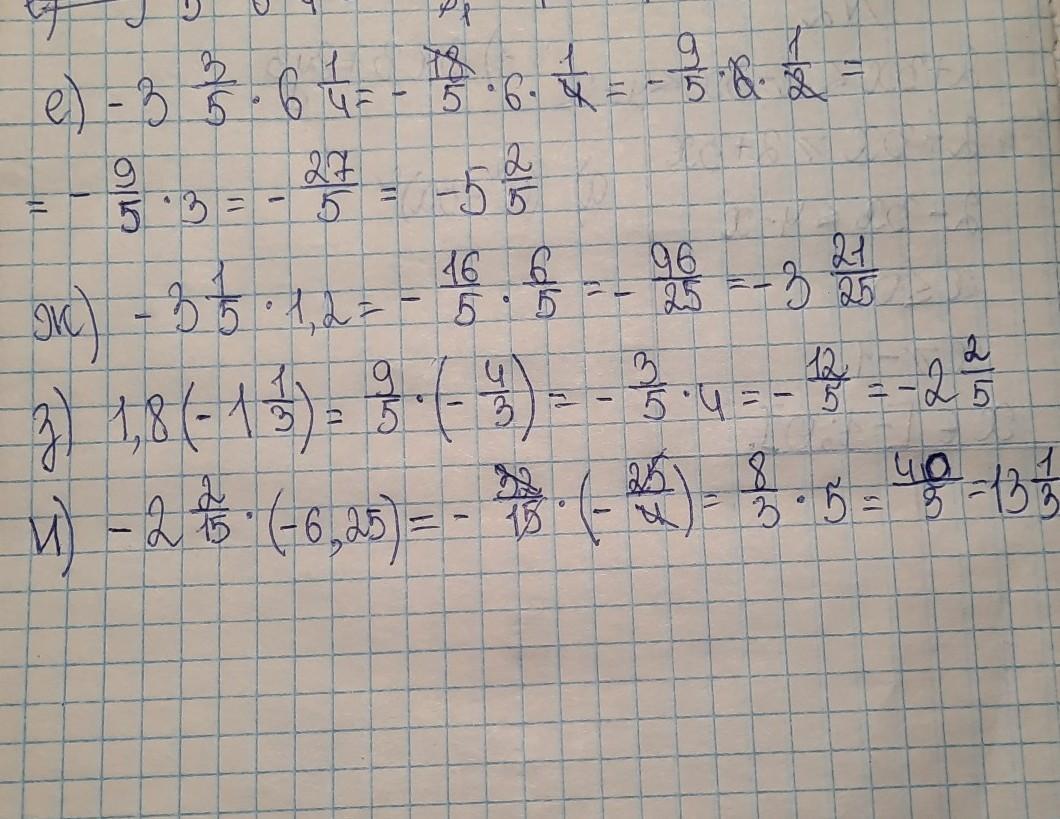 е) - 3 3/5 · 6 1/4 = - 18/5 · 6 · 1/4 = - 9/5 · 6 · 1/2 =
= - 9/5 · 3 = - 27/5 = -5 2/5
ж) - 3 1/5 · 1,2 = - 16/5 · 6/5 = - 96/25 = - 3 21/25
з) 1,8 (- 1 1/3) = 9/5 · (- 4/3) = - 3/5 · 4 = - 12/5 = - 2 2/5
и) - 2 2/15 · (-6,25) = - 32/15 · (- 25/4) = 8/3 · 5 = 40/3 = 13 1/3